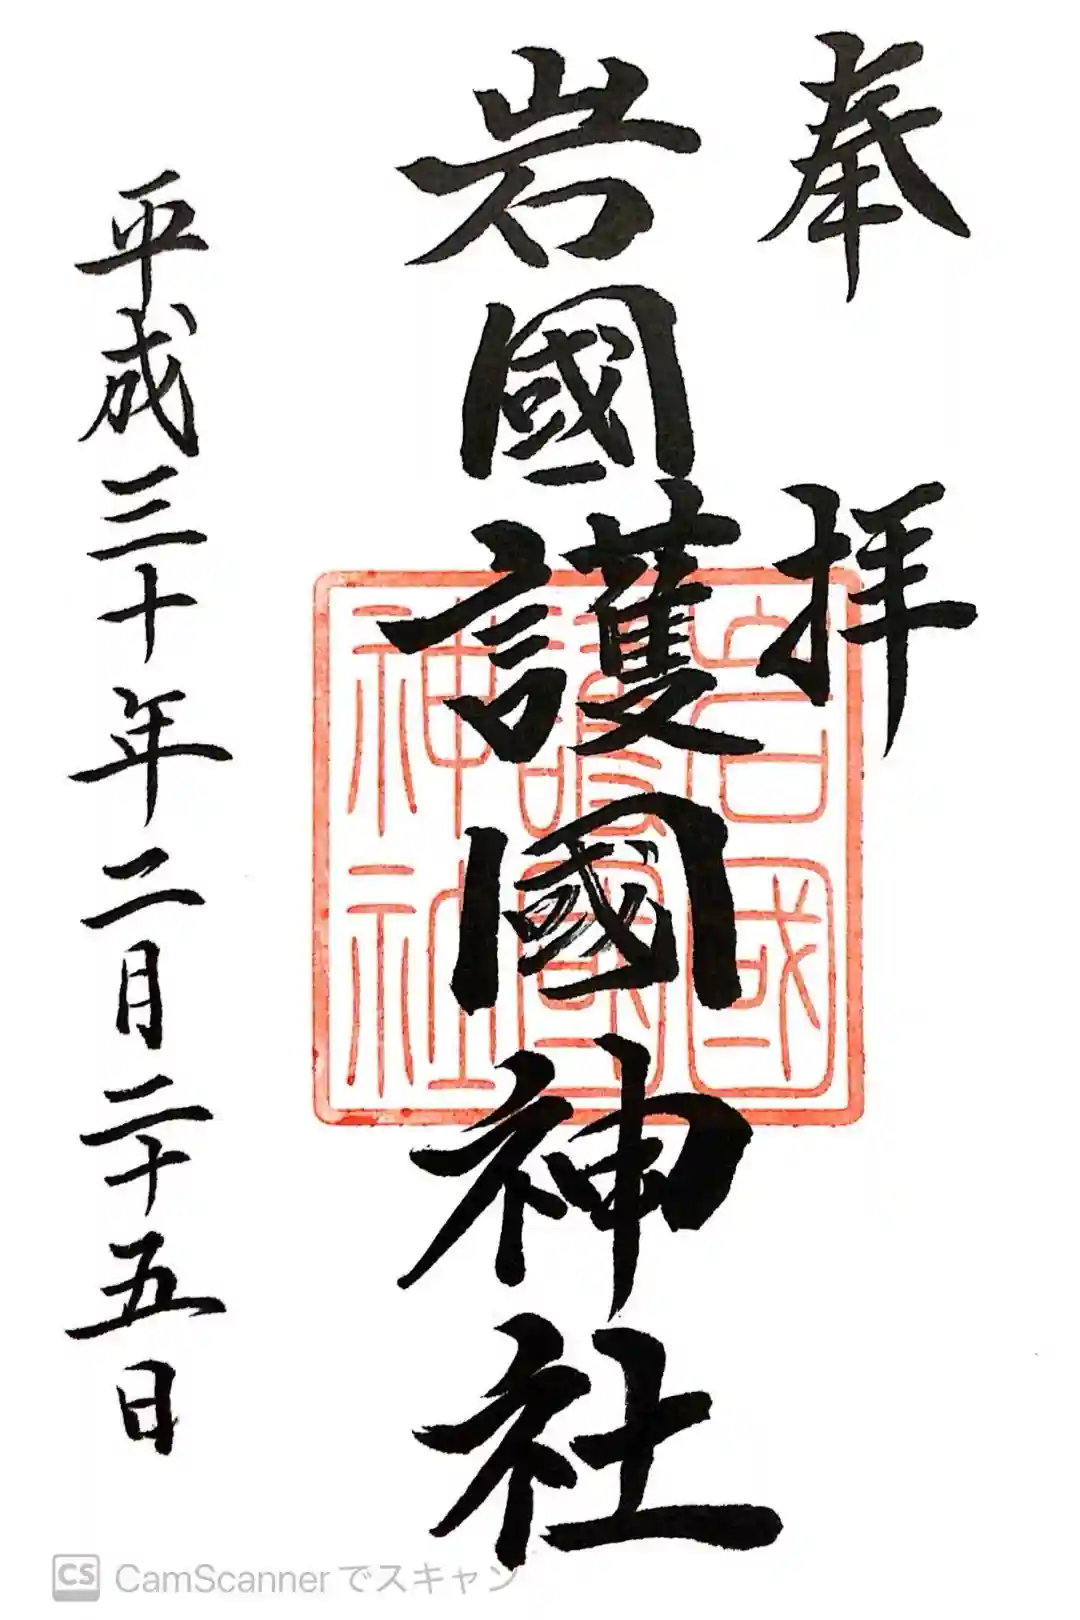 奉拝
岩國護國神社
岩國
護國
神社
平成三十年二月二十五日
CS CamScannerでスキャン